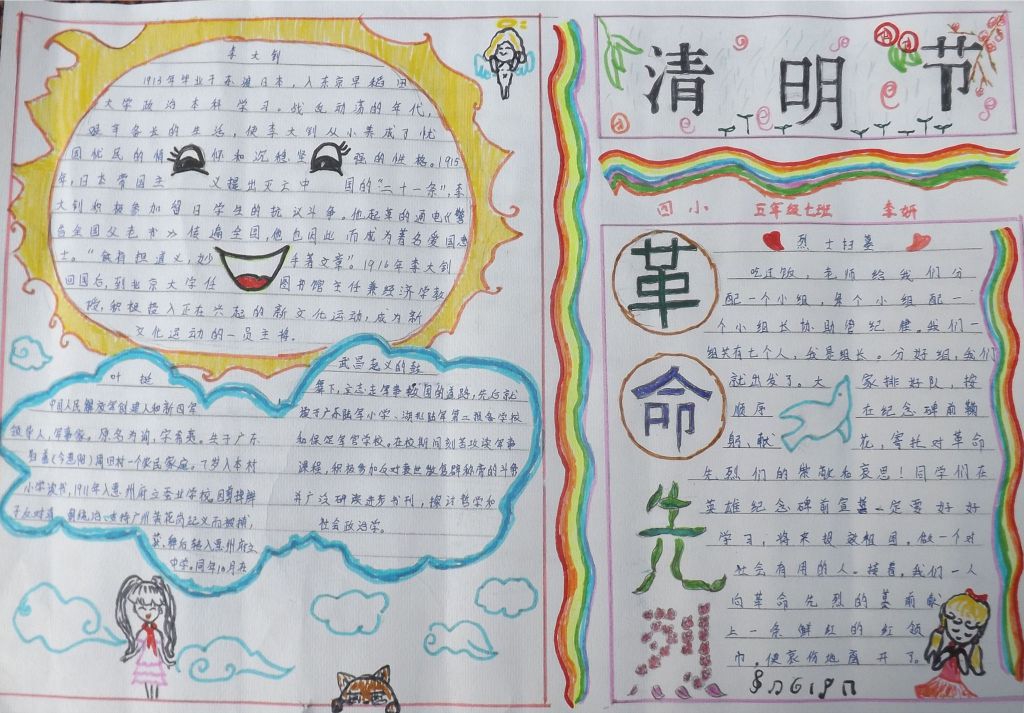 李大钊
1913年毕业于东渡日本，入东京早稻田
大学政治本科学习。战乱动荡的年代，
艰辛备长的生活，使李大钊从小养成了忧
国忧民的情怀和沉稳坚强的性格。1915
年，日本帝国主义提出灭亡中国的“二十一条”，李
大钊积极参加留日学生的抗议斗争。他起草的通电《警
告全国父老书》传遍全国，他也因此而成为著名爱国志
士。“铁肩担道义，妙手著文章”。1916年李大钊
回国后，到北京大学任图书馆主任兼经济学教
授，积极投入正在兴起的新文化运动，成为新
文化运动的一员主将。
叶挺
中国人民解放军创建人和新四军
领导人，军事家。原名为询，字希夷。生于广东
归善（今惠阳）周田村一个农民家庭。7岁入本村
小学读书，1911年入惠州府立蚕业学校。因剪掉辫
子反对清
支持广州黄花岗起义而被捕，
获释后转入惠州府立
中学。同年10月在
武昌起义的鼓
舞下，立志走军事救国的道路，先后就
读于广东陆军小学、湖北陆军第二预备学校
和保定军官学校。在校期间刻苦攻读军事
课程，积极参加反对袁世凯复辟称帝的斗争
并广泛研读进步书刊，探讨哲学和
社会政治学。
清明节
回小 五年级七班 李妍
革命先烈
烈士扫墓
吃过饭，老师给我们分
配一个小组，每个小组配一
个小组长协助管纪律。我们一
组共有七个人，我是组长。分好组，我们
就出发了。大家排好队，按
顺序在纪念碑前鞠
躬、献花，寄托对革命
先烈们的崇敬和哀思！同学们在
英雄纪念碑前宣誓一定要好好
学习，将来报效祖国。做一个对
社会有用的人。接着，我们一人
向革命先烈的墓前献
上一条鲜红的红领
巾。便哀伤地离开了。